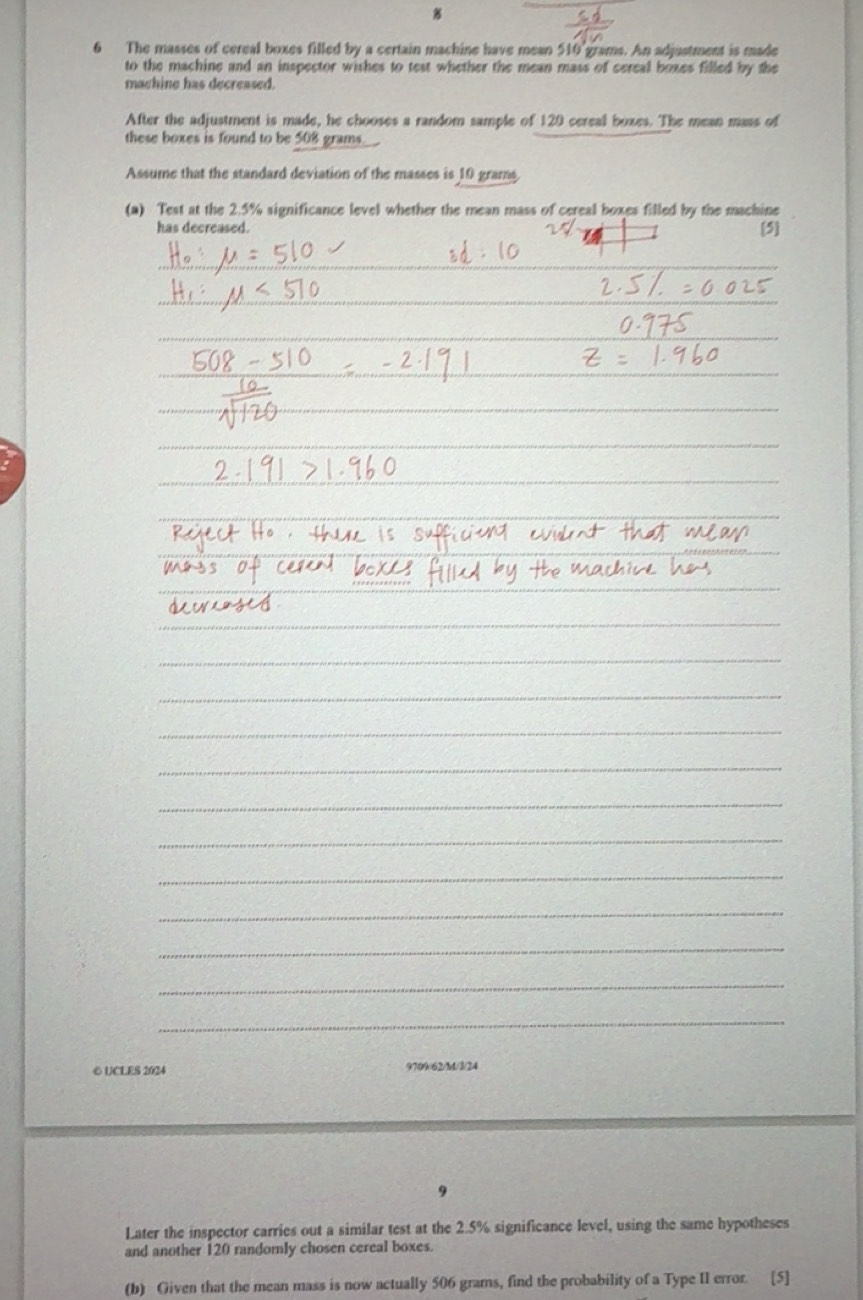 8
sd
√n
6 The masses of cereal boxes filled by a certain machine have mean 510 grams. An adjustment is made
to the machine and an inspector wishes to test whether the mean mass of cereal boxes filled by the
machine has decreased.
After the adjustment is made, he chooses a random sample of 120 cereal boxes. The mean mass of
these boxes is found to be 508 grams.
Assume that the standard deviation of the masses is 10 grams.
(a) Test at the 2.5% significance level whether the mean mass of cereal boxes filled by the machine
has decreased. [5]
H₀: μ = 510 ✓ sd: 10
H₁: μ < 510 2.5% = 0.025
0.975
508 - 510 = -2.191 z = 1.960
10
√120
2.191 > 1.960
Reject H₀, there is sufficient evident that mean
mass of cereal boxes filled by the machine has
decreased.
© UCLES 2024 9709/62/M/J/24
9
Later the inspector carries out a similar test at the 2.5% significance level, using the same hypotheses
and another 120 randomly chosen cereal boxes.
(b) Given that the mean mass is now actually 506 grams, find the probability of a Type II error. [5]